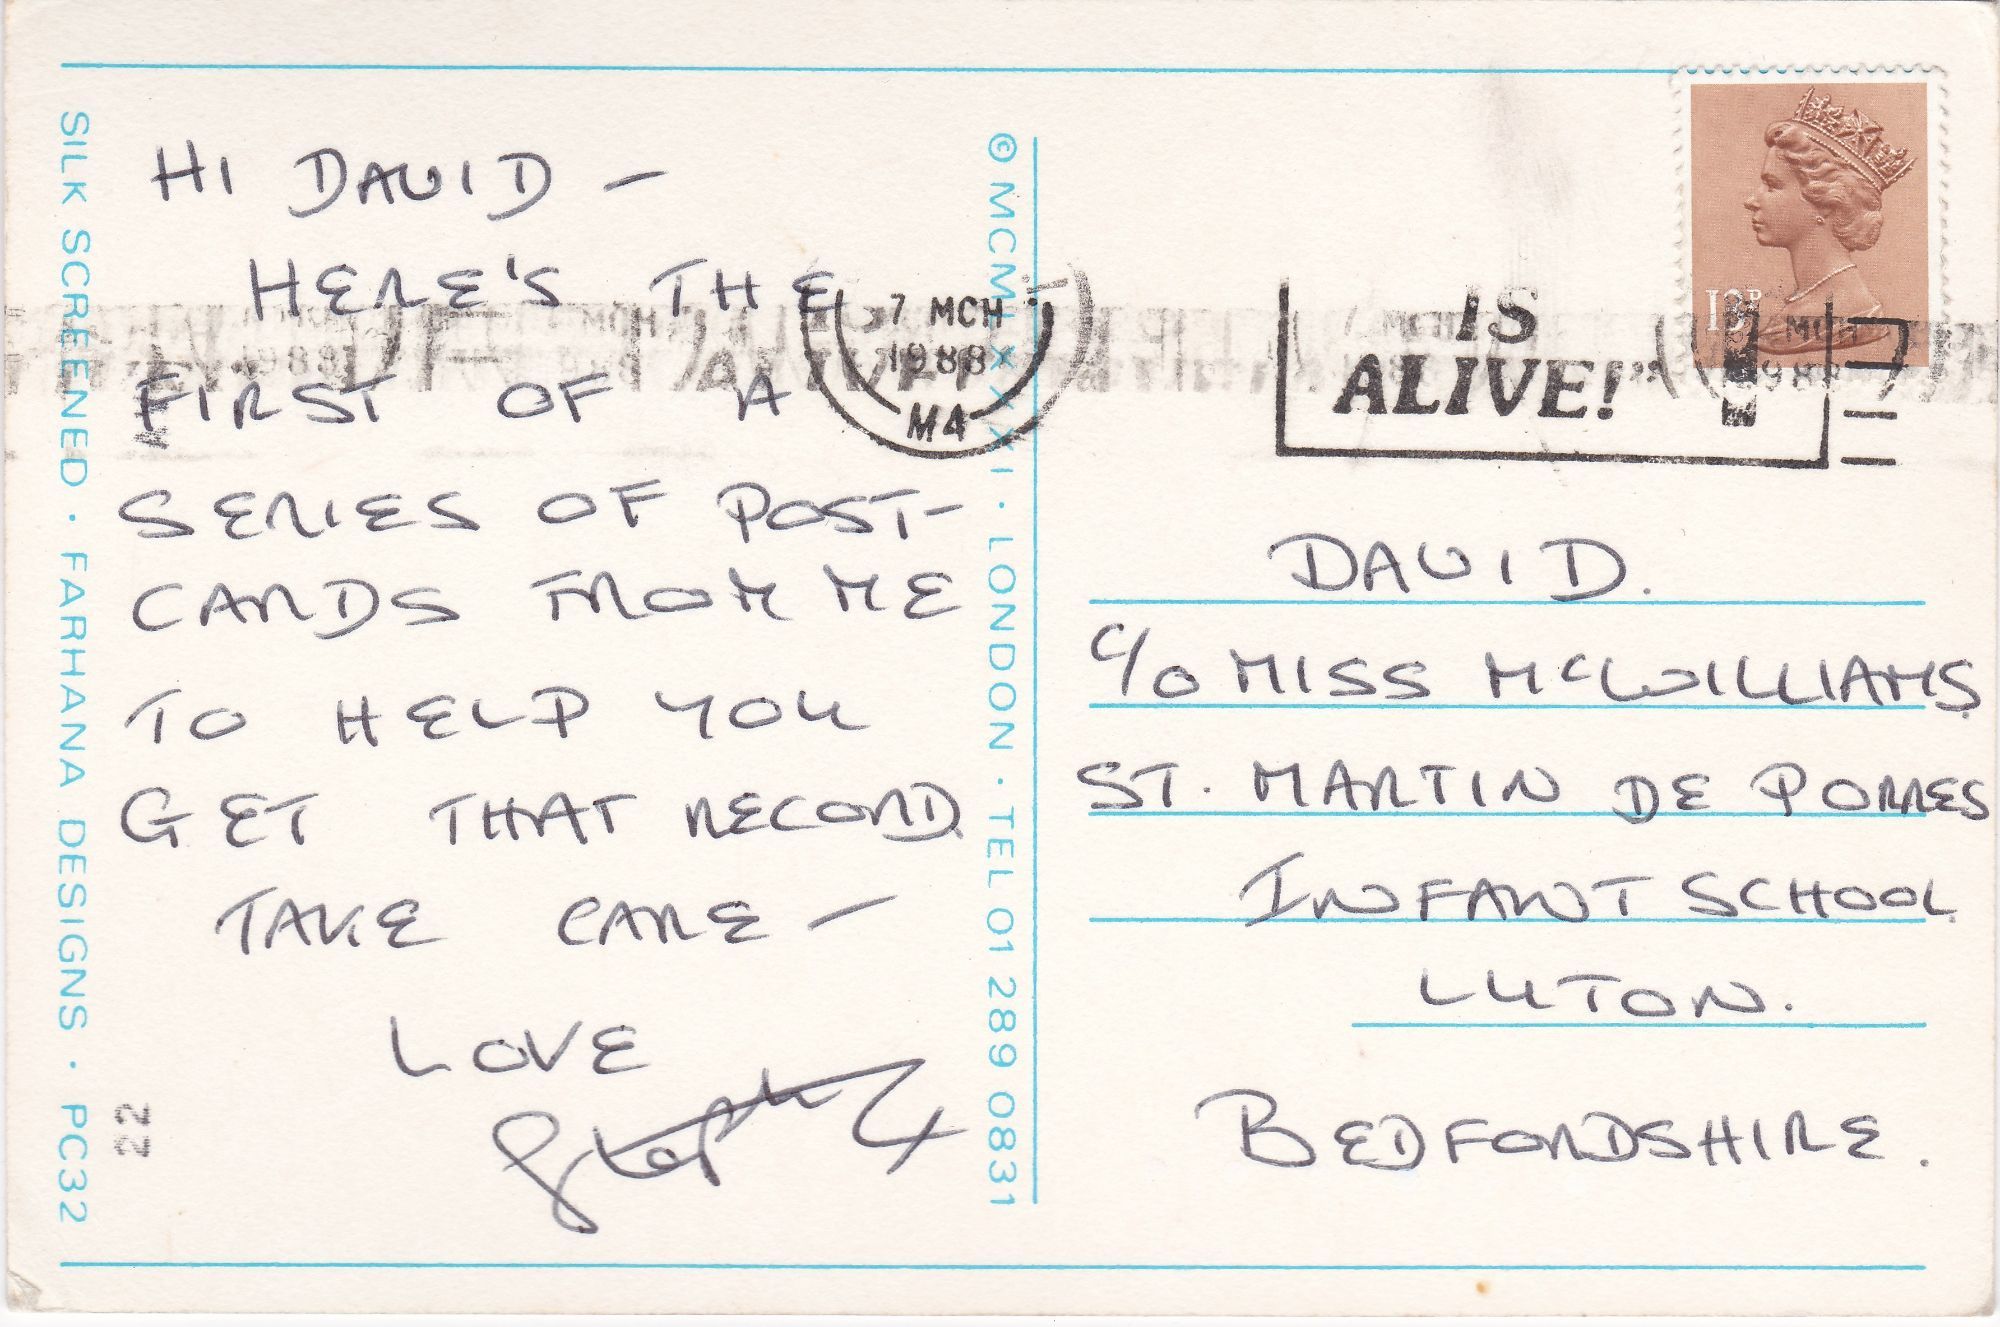 SILK SCREENED · FARHANA DESIGNS · PC32
HI DAVID —
HERE'S THE
FIRST OF A
SERIES OF POST-
CARDS FROM ME
TO HELP YOU
GET THAT RECORD.
TAKE CARE —
LOVE
22
© MCMLXXXI · LONDON · TEL 01 289 0831
7 MCH
1988
M4
IS
ALIVE!"
13P
DAVID.
C/O MISS McWILLIAMS
ST. MARTIN DE PORRES
INFANT SCHOOL
LUTON.
BEDFORDSHIRE.